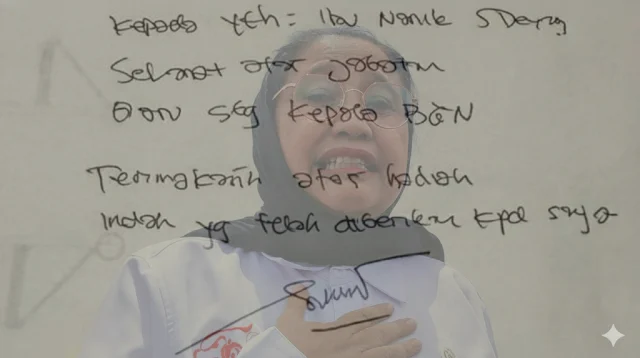 Kepada Yth: Ibu Nanik S Deyang
Selamat atas jabatan
Dari sbg Kepala BGN
Terimakasih atas hadiah
Indah yg telah diberikan kpd saya